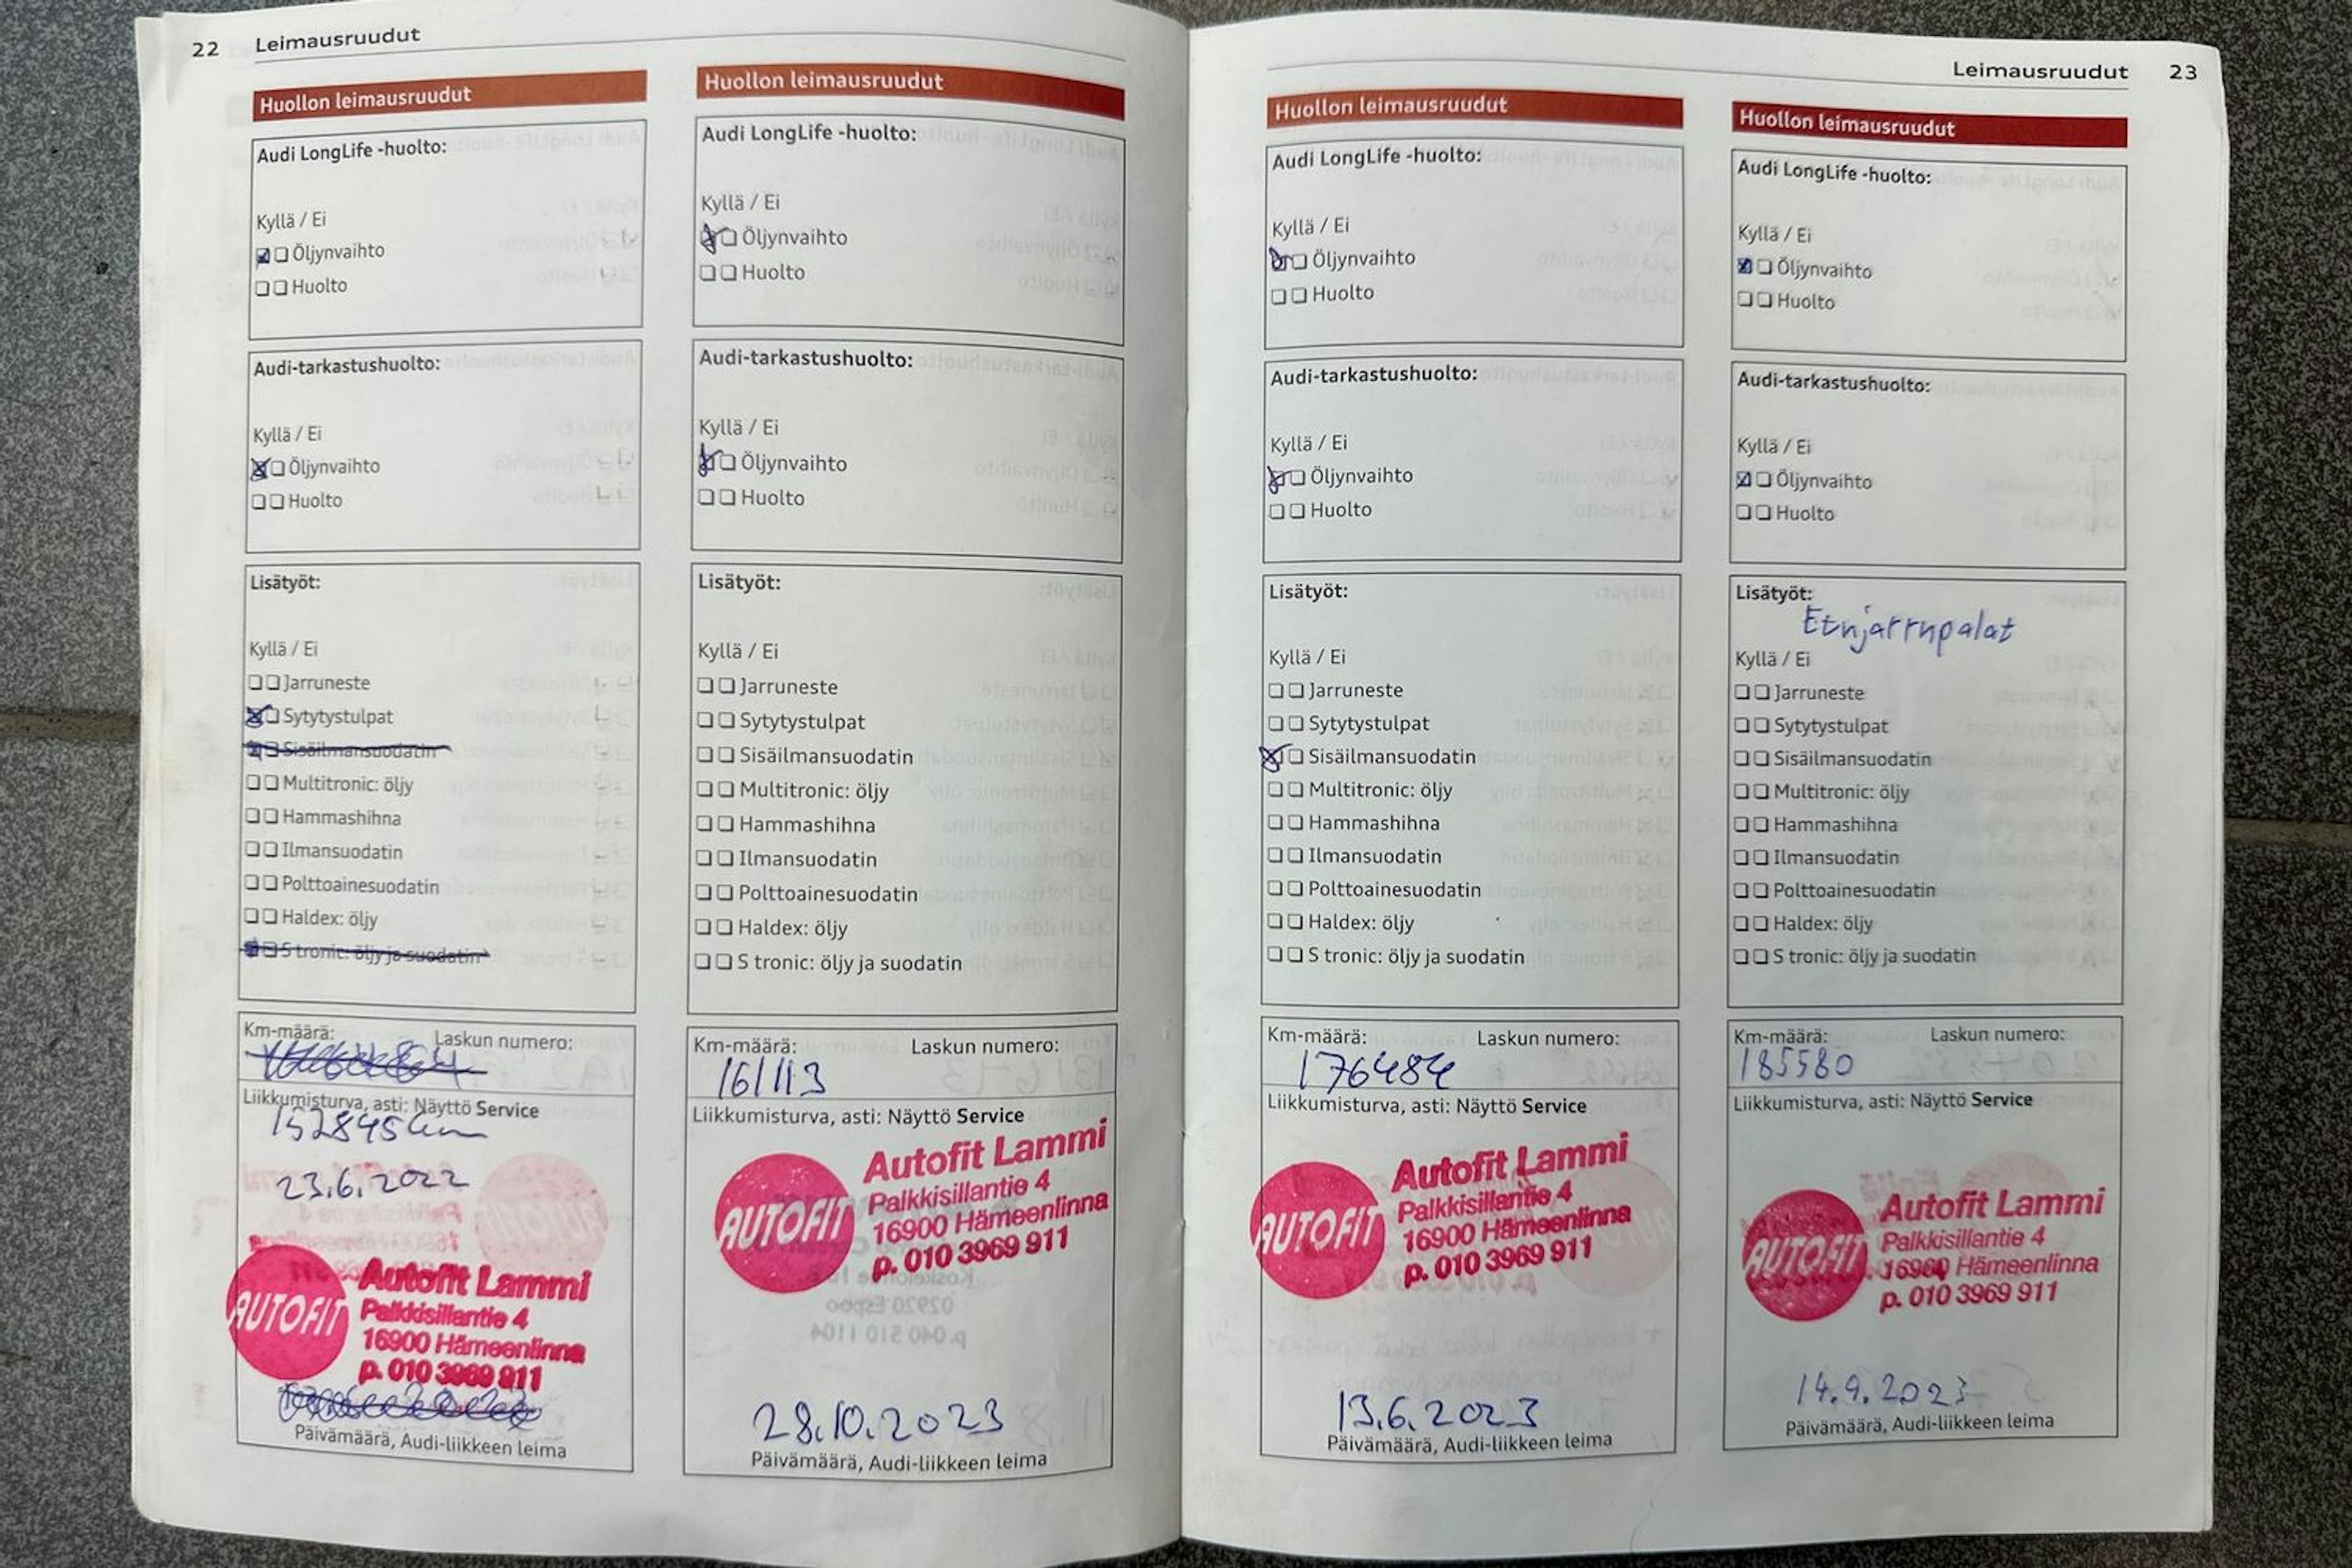 22 Leimausruudut
Huollon leimausruudut
Audi LongLife -huolto:
Kyllä / Ei
Öljynvaihto
Huolto
Audi-tarkastushuolto:
Kyllä / Ei
Öljynvaihto
Huolto
Lisätyöt:
Kyllä / Ei
Jarruneste
Sytytystulpat
Sisäilmansuodatin
Multitronic: öljy
Hammashihna
Ilmansuodatin
Polttoainesuodatin
Haldex: öljy
S tronic: öljy ja suodatin
Km-määrä: Laskun numero:
Liikkumisturva, asti: Näyttö Service
152845 km
23.6.2022
AUTOFIT
Autofit Lammi
Palkkisillantie 4
16900 Hämeenlinna
p. 010 3969 911
Päivämäärä, Audi-liikkeen leima
Huollon leimausruudut
Audi LongLife -huolto:
Kyllä / Ei
Öljynvaihto
Huolto
Audi-tarkastushuolto:
Kyllä / Ei
Öljynvaihto
Huolto
Lisätyöt:
Kyllä / Ei
Jarruneste
Sytytystulpat
Sisäilmansuodatin
Multitronic: öljy
Hammashihna
Ilmansuodatin
Polttoainesuodatin
Haldex: öljy
S tronic: öljy ja suodatin
Km-määrä: Laskun numero:
161113
Liikkumisturva, asti: Näyttö Service
AUTOFIT
Autofit Lammi
Palkkisillantie 4
16900 Hämeenlinna
p. 010 3969 911
28.10.2023
Päivämäärä, Audi-liikkeen leima
Leimausruudut 23
Huollon leimausruudut
Audi LongLife -huolto:
Kyllä / Ei
Öljynvaihto
Huolto
Audi-tarkastushuolto:
Kyllä / Ei
Öljynvaihto
Huolto
Lisätyöt:
Kyllä / Ei
Jarruneste
Sytytystulpat
Sisäilmansuodatin
Multitronic: öljy
Hammashihna
Ilmansuodatin
Polttoainesuodatin
Haldex: öljy
S tronic: öljy ja suodatin
Km-määrä: Laskun numero:
176484
Liikkumisturva, asti: Näyttö Service
AUTOFIT
Autofit Lammi
Palkkisillantie 4
16900 Hämeenlinna
p. 010 3969 911
13.6.2023
Päivämäärä, Audi-liikkeen leima
Huollon leimausruudut
Audi LongLife -huolto:
Kyllä / Ei
Öljynvaihto
Huolto
Audi-tarkastushuolto:
Kyllä / Ei
Öljynvaihto
Huolto
Lisätyöt:
Etujarrupalat
Kyllä / Ei
Jarruneste
Sytytystulpat
Sisäilmansuodatin
Multitronic: öljy
Hammashihna
Ilmansuodatin
Polttoainesuodatin
Haldex: öljy
S tronic: öljy ja suodatin
Km-määrä: Laskun numero:
185580
Liikkumisturva, asti: Näyttö Service
AUTOFIT
Autofit Lammi
Palkkisillantie 4
16900 Hämeenlinna
p. 010 3969 911
14.9.2023
Päivämäärä, Audi-liikkeen leima